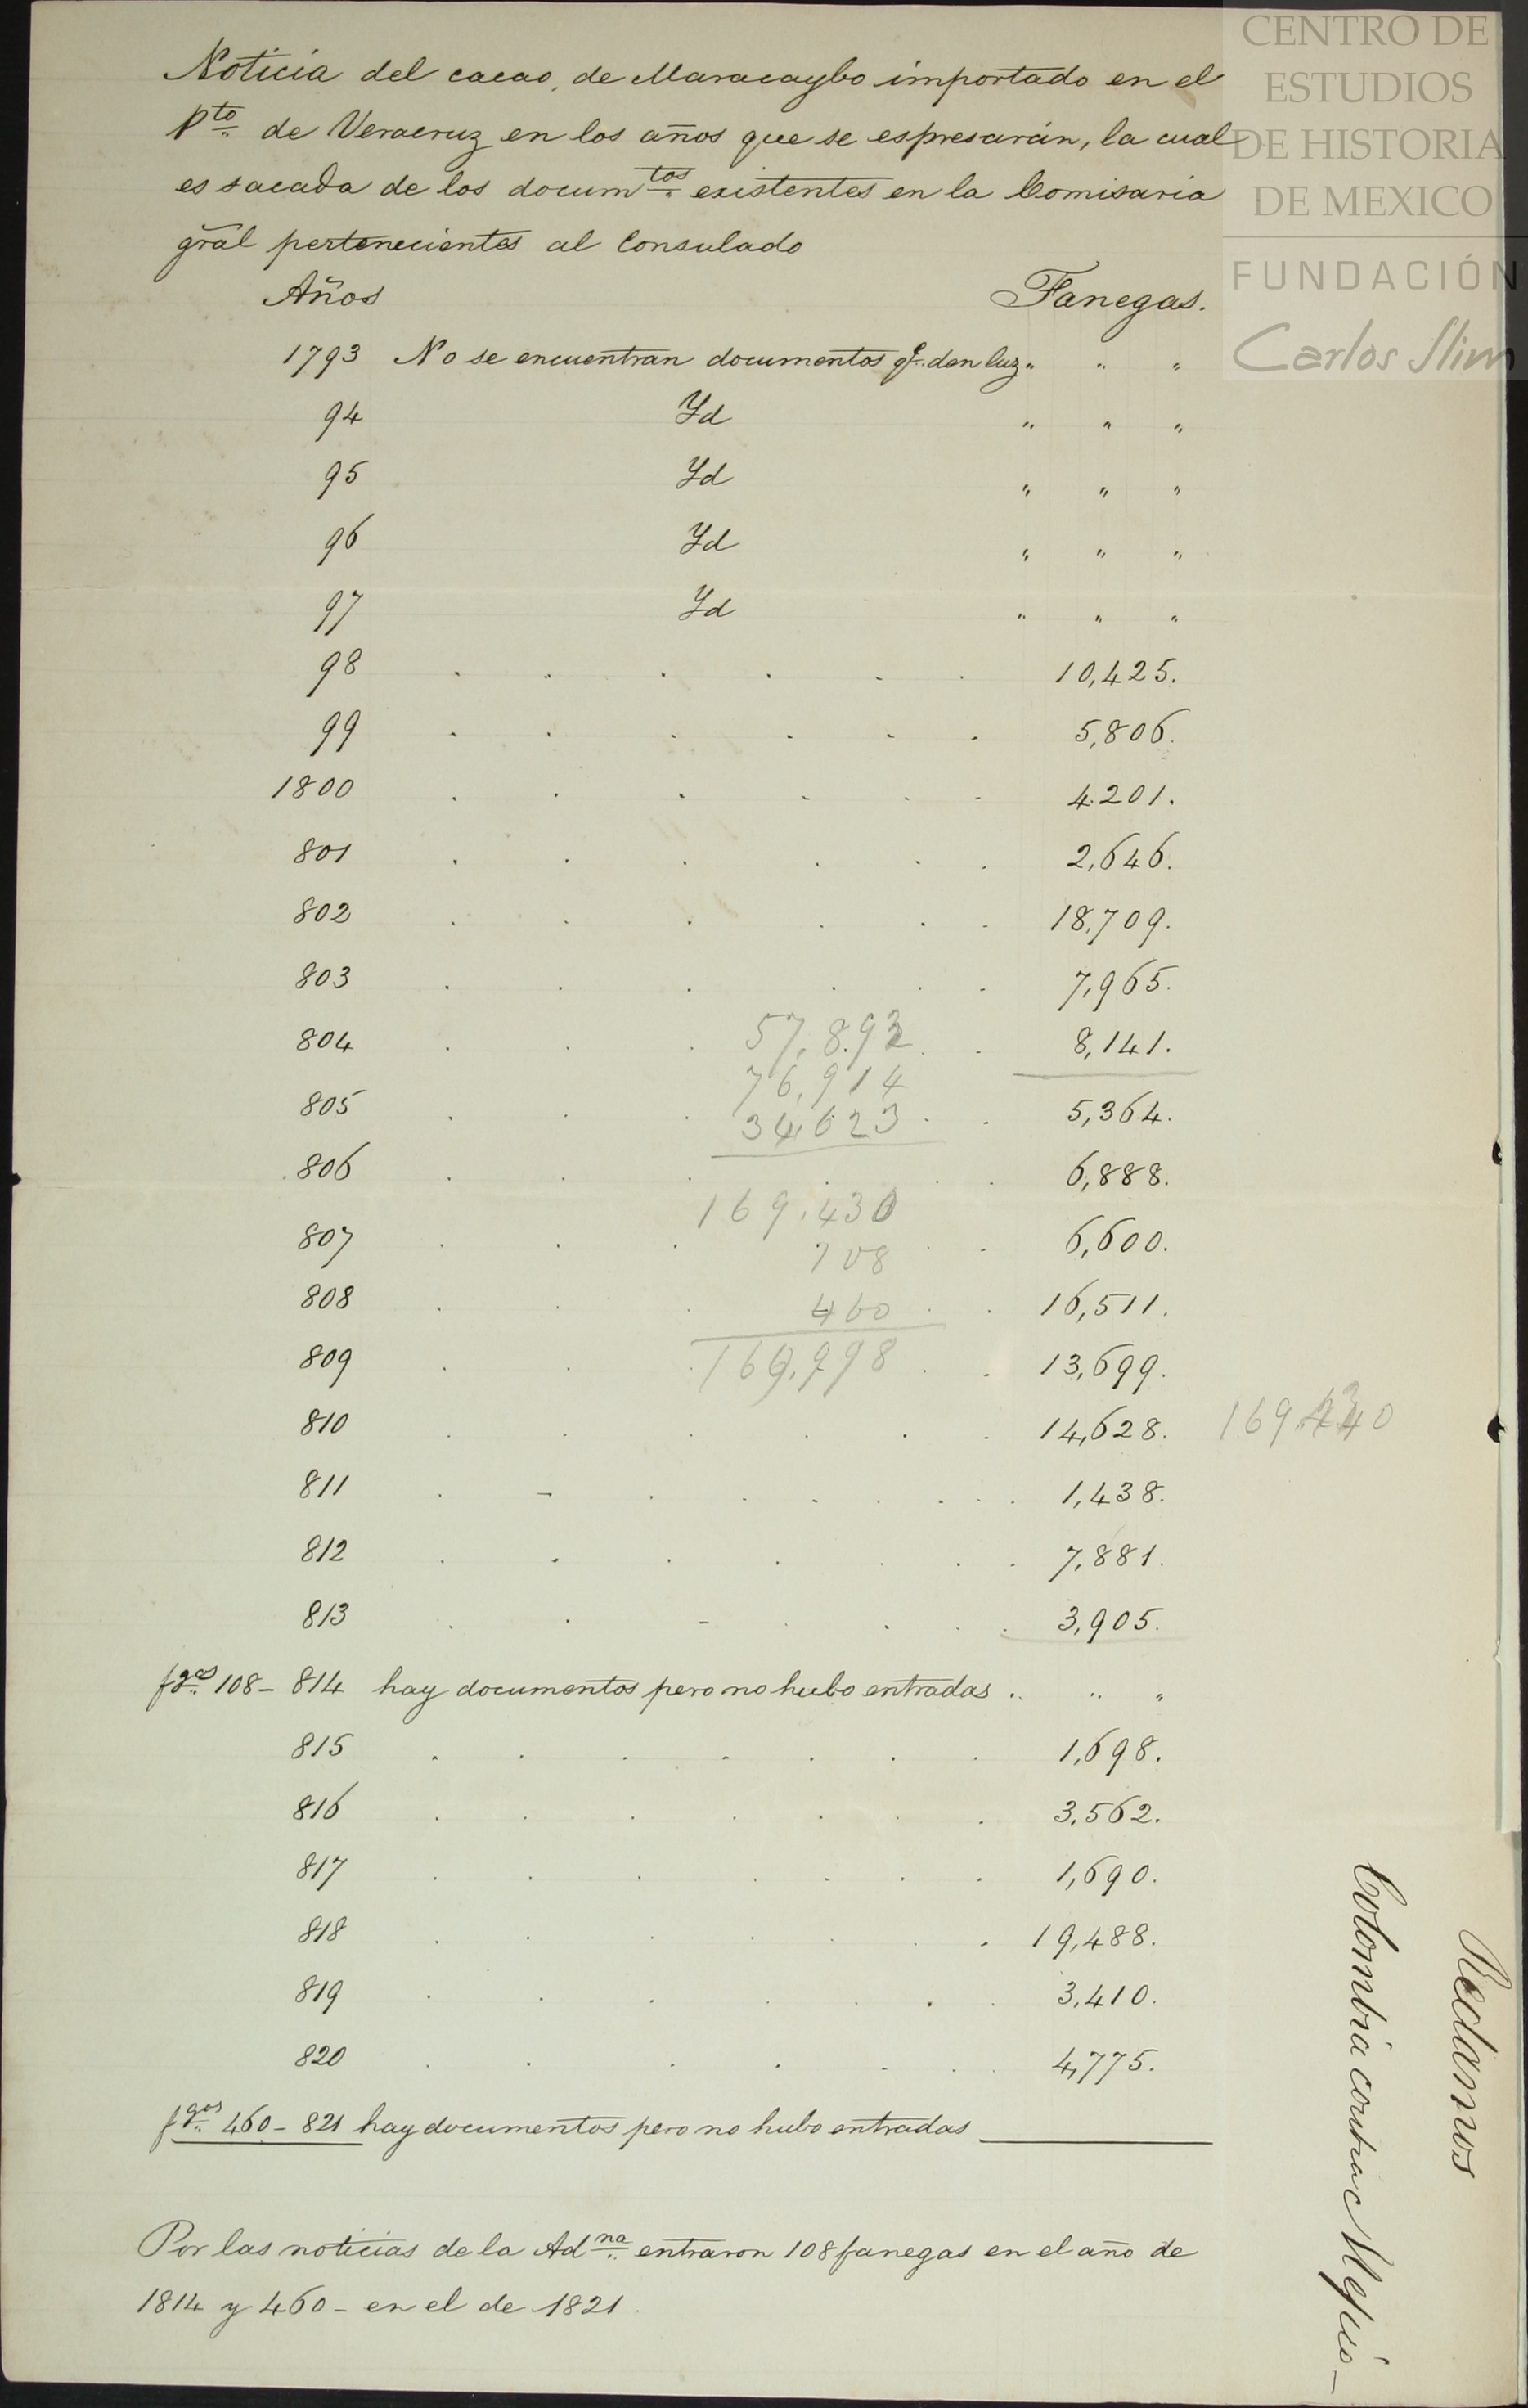 CENTRO DE
ESTUDIOS
DE HISTORIA
DE MEXICO
FUNDACIÓN
Carlos Slim
Noticia del cacao, de Maracaybo importado en el
Pto de Veracruz en los años que se espresarán, la cual
es sacada de los documtos existentes en la Comisaria
gral pertenecientes al Consulado
Años Fanegas.
1793 No se encuentran documentos qe den luz " " "
94 Yd " " "
95 Yd " " "
96 Yd " " "
97 Yd " " "
98 . . . . . . 10,425.
99 . . . . . . 5,806.
1800 . . . . . . 4.201.
801 . . . . . . 2,646.
802 . . . . . . 18,709.
803 . . . . . . 7,965.
804 . . . 57,892 . . 8,141.
76,914
805 . . . 34,623 . . 5,364.
806 . . . . . . 6,888.
169.430
807 . . . . . 6,600.
108
808 . . . 460 . . 16,511.
809 . . . 169,998 . . 13,699.
810 . . . . . . 14,628. 169.430
811 . - . . . . . . 1,438.
812 . . . . . . . 7,881.
813 . . - . . . . 3,905.
fgas 108 - 814 hay documentos pero no hubo entradas " " "
815 . . . . . . . 1,698.
816 . . . . . . . 3,562.
817 . . . . . . . 1,690.
818 . . . . . . 19,488.
819 . . . . . . . 3,410.
820 . . . . . . 4,775.
fgas 460 - 821 hay documentos pero no hubo entradas
Por las noticias de la Adna entraron 108 fanegas en el año de
1814 y 460 - en el de 1821.
Reclamos
Colombia contra Mejico -